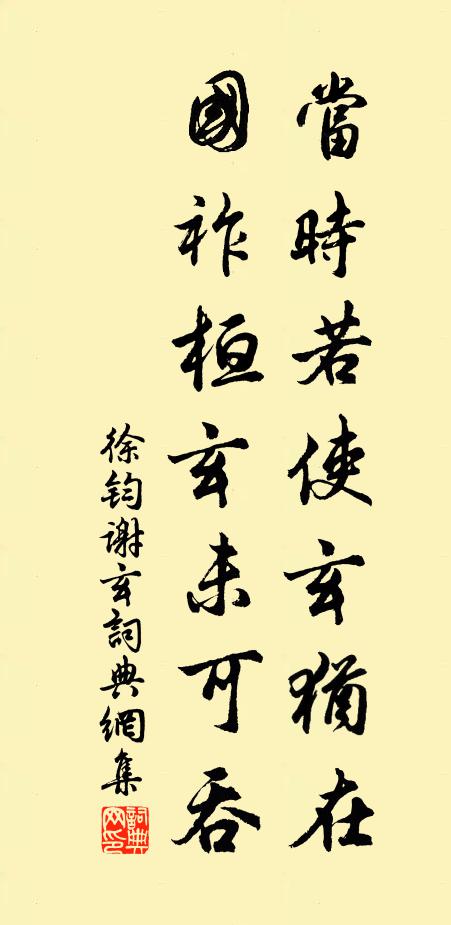 當時若使玄猶在
國祚桓玄未可吞
徐鈞謝玄詞典網集
詞典網印